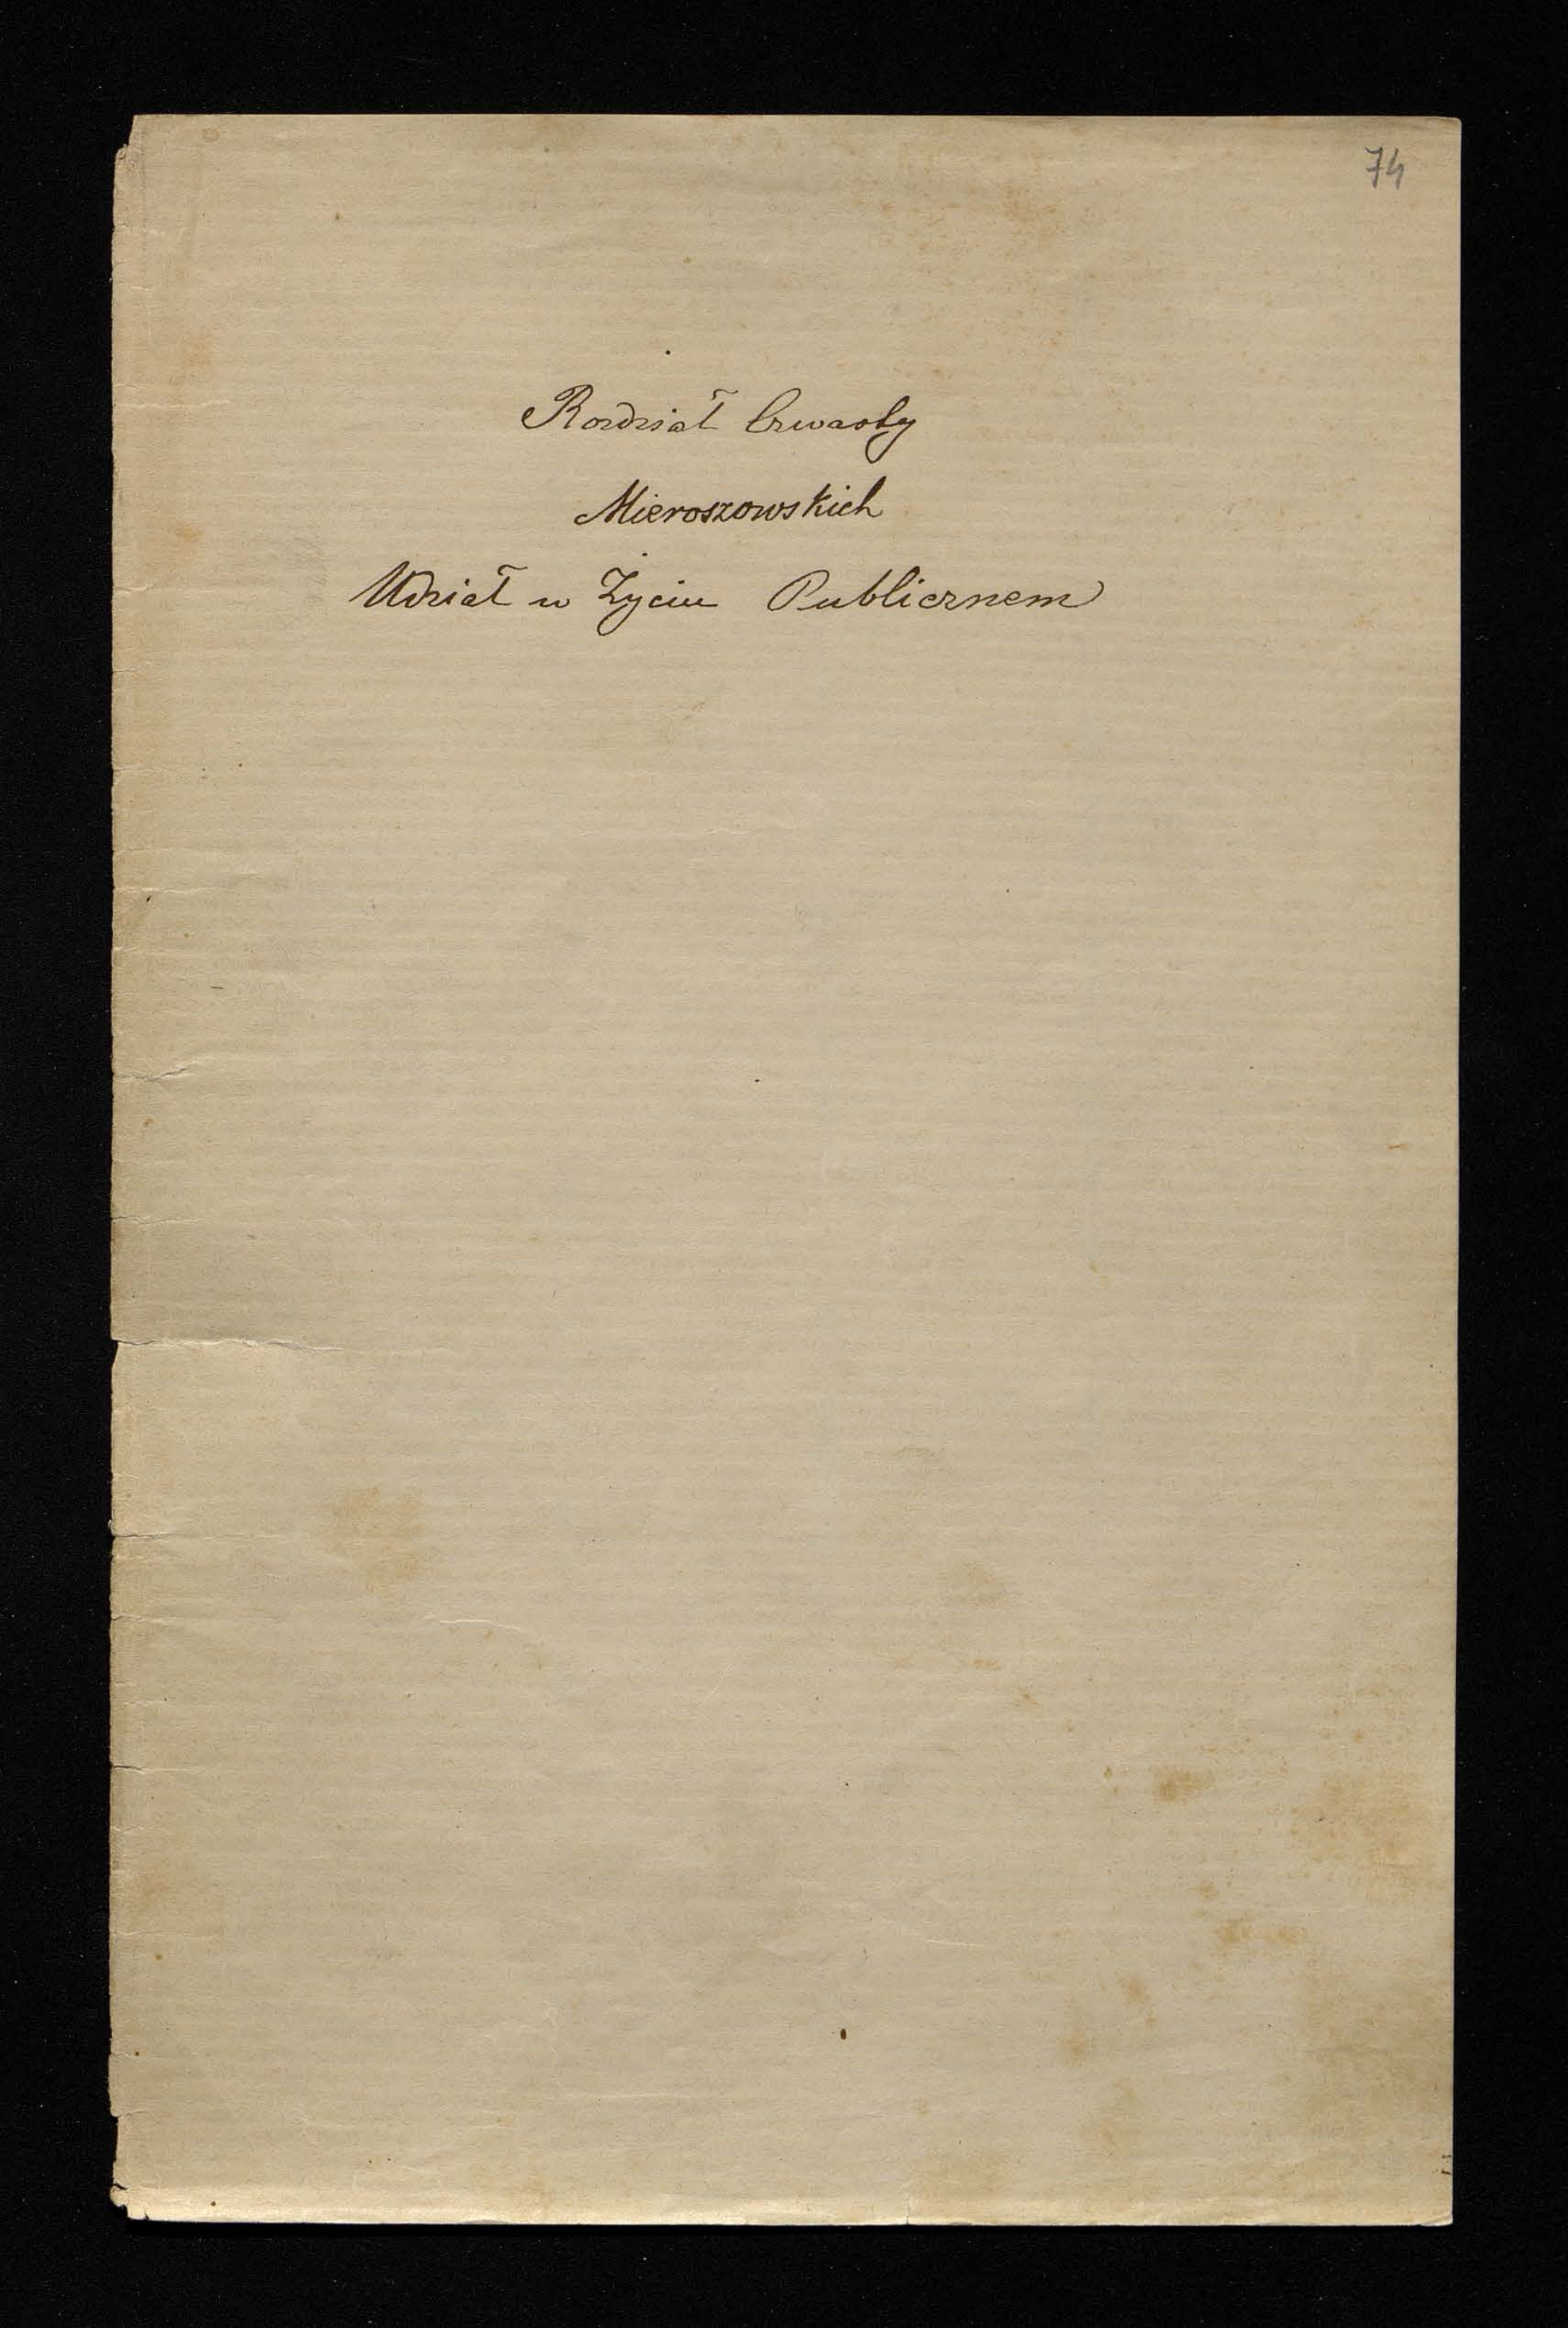 74
Rozdział Czwarty
Mieroszowskich
Udział w Życiu Publicznem